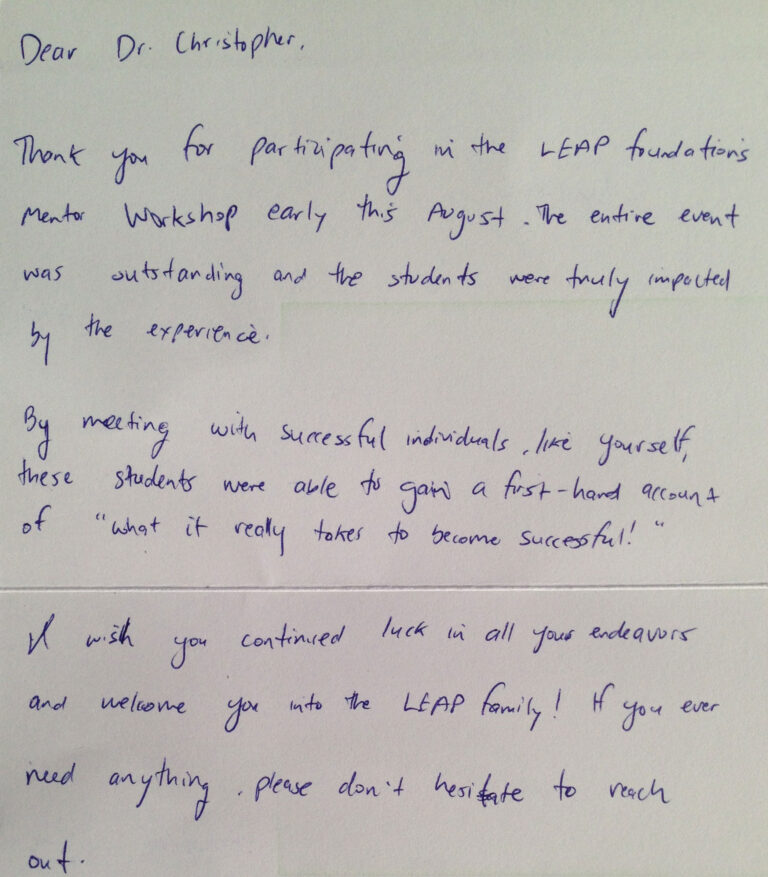 Dear Dr. Christopher,
Thank you for participating in the LEAP foundation's
Mentor Workshop early this August. The entire event
was outstanding and the students were truly impacted
by the experience.
By meeting with successful individuals, like yourself,
these students were able to gain a first-hand account
of "what it really takes to become successful!"
I wish you continued luck in all your endeavors
and welcome you into the LEAP family! If you ever
need anything, please don't hesitate to reach
out.